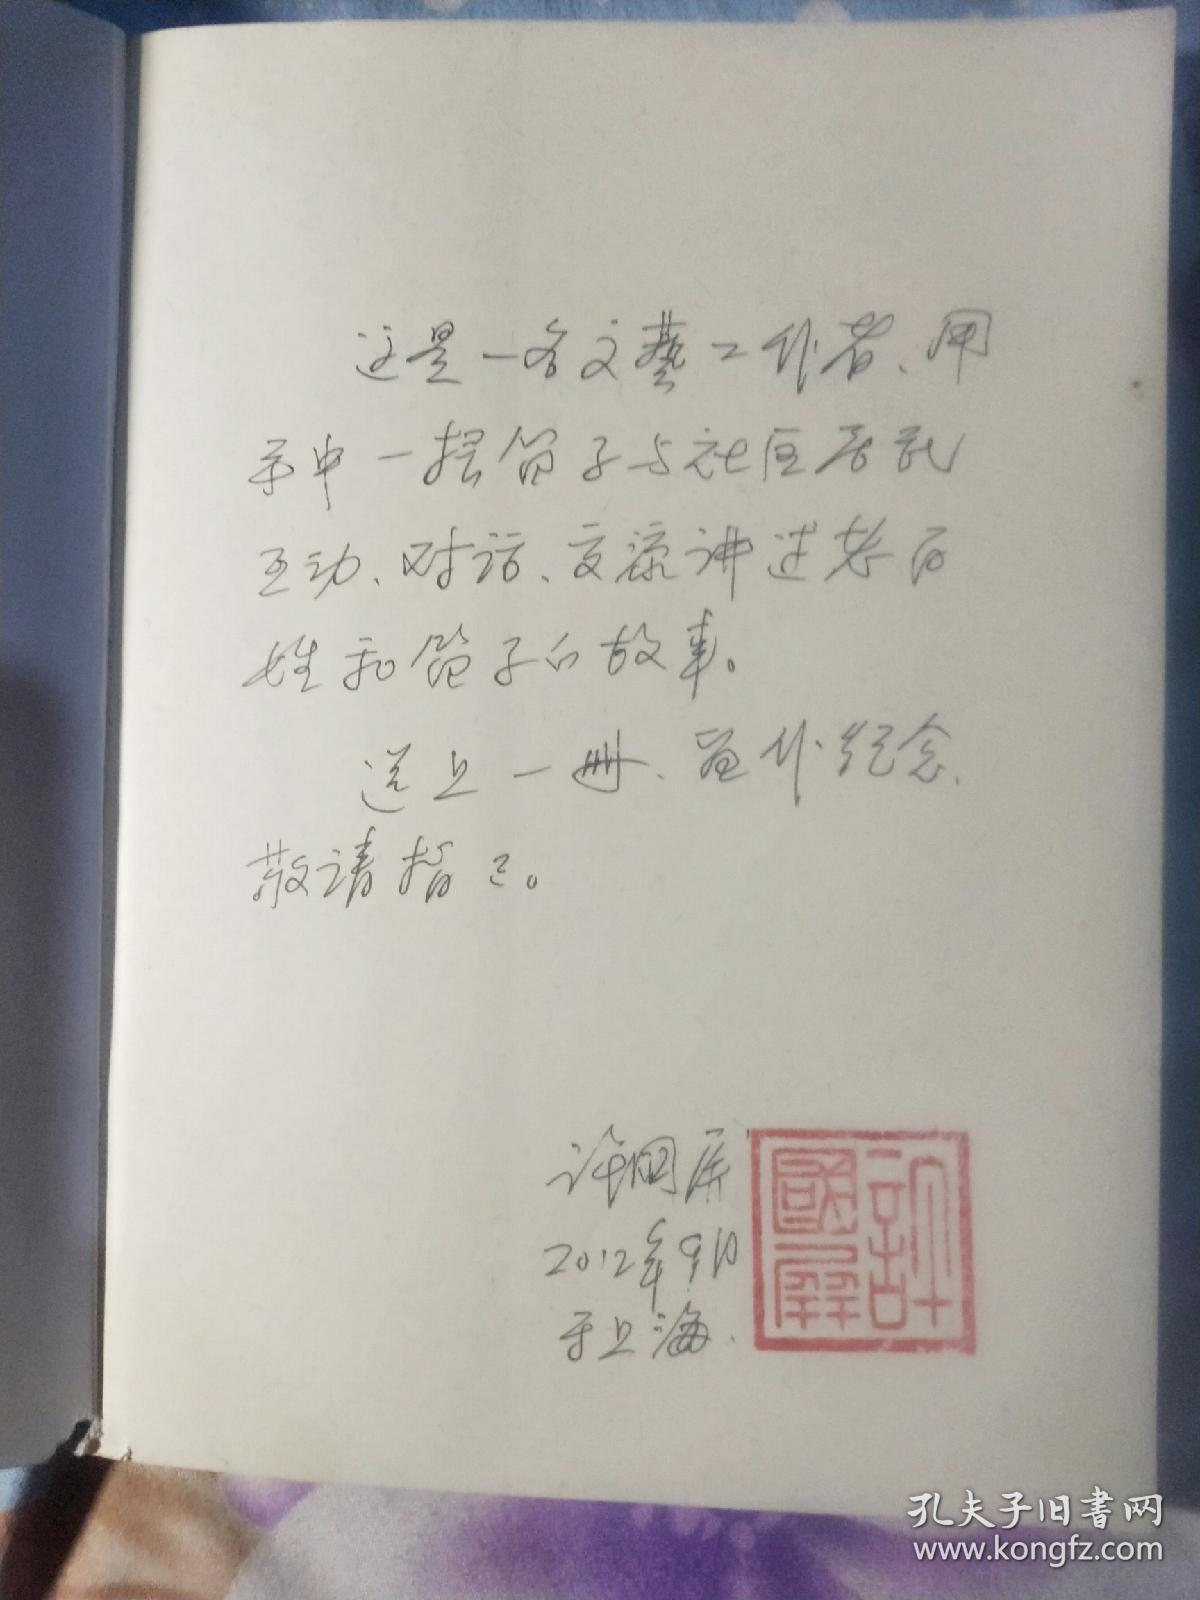 这是一名文藝工作者、用
手中一把笛子与社区居民
互动、对话、交流讲述老百
姓和笛子的故事。
送上一册、留作纪念、
敬请指正。
许国屏
2012年9月
于上海.
許國屏
孔夫子旧书网
www.kongfz.com